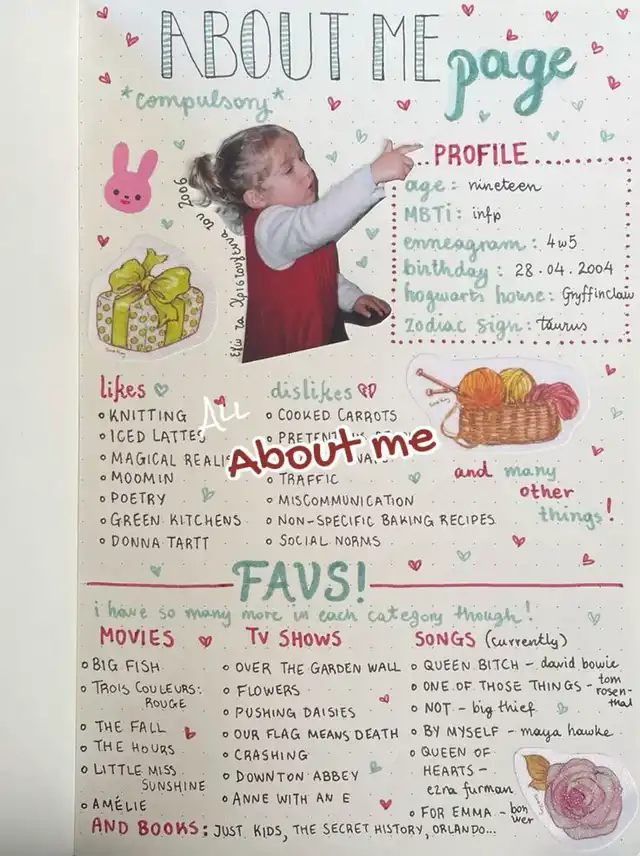 ABOUT ME
page
*compulsory*
PROFILE
age: nineteen
MBTi: infp
enneagram: 4w5
birthday: 28.04.2004
hogwarts house: Gryffinclaw
zodiac sign: taurus
Εγώ τα Χριστούγεννα του 2006
likes
KNITTING
ICED LATTES
MAGICAL
MOOMIN
POETRY
GREEN KITCHENS
DONNA TARTT
dislikes
COOKED CARROTS
TRAFFIC
MISCOMMUNICATION
NON-SPECIFIC BAKING RECIPES
SOCIAL NORMS
ALL
About me
and many
other
things!
FAVS!
i have so many more in each category though!
MOVIES
BIG FISH
TROIS COULEURS:
ROUGE
THE FALL
THE HOURS
LITTLE MISS
SUNSHINE
AMÉLIE
TV SHOWS
OVER THE GARDEN WALL
FLOWERS
PUSHING DAISIES
OUR FLAG MEANS DEATH
CRASHING
DOWNTON ABBEY
ANNE WITH AN E
SONGS (currently)
QUEEN BITCH - david bowie
ONE OF THOSE THINGS - tom
rosen-
thal
NOT - big thief
BY MYSELF - maya hawke
QUEEN OF
HEARTS -
ezra furman
FOR EMMA - bon
iver
AND BOOKS: JUST KIDS, THE SECRET HISTORY, ORLANDO...